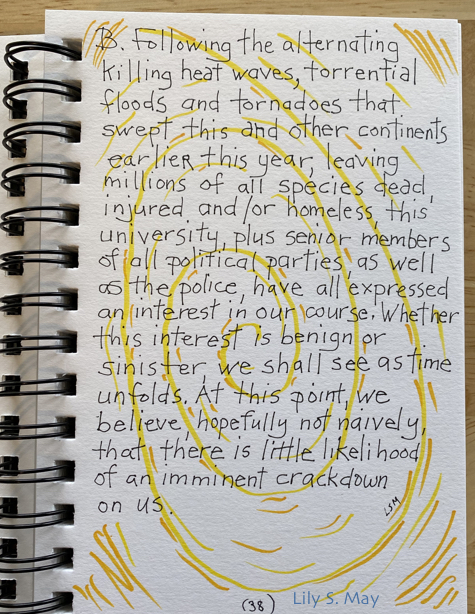 B. Following the alternating
killing heat waves, torrential
floods and tornadoes that
swept this and other continents
earlier this year, leaving
millions of all species dead,
injured and/or homeless, this
university, plus senior members
of all political parties, as well
as the police, have all expressed
an interest in our course. Whether
this interest is benign or
sinister, we shall see as time
unfolds. At this point, we
believe, hopefully not naively,
that there is little likelihood
of an imminent crackdown
on us.
LSM
(38) Lily S. May